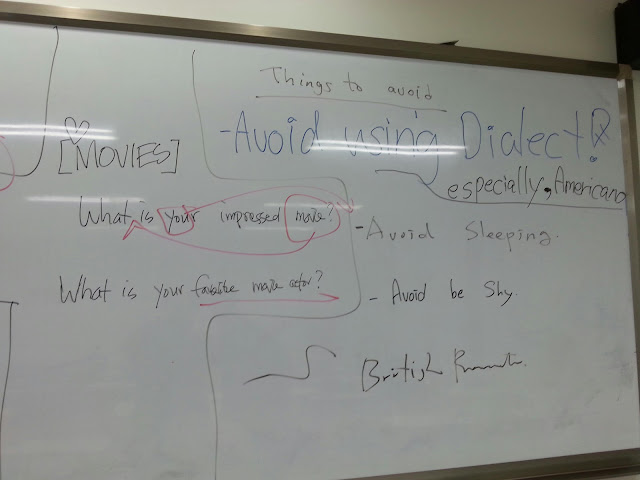 Things to avoid
-Avoid using Dialect!
especially, Americano
[MOVIES]
What is your impressed movie?
-Avoid Sleeping.
What is your favorite movie actor?
- Avoid be Shy.
British